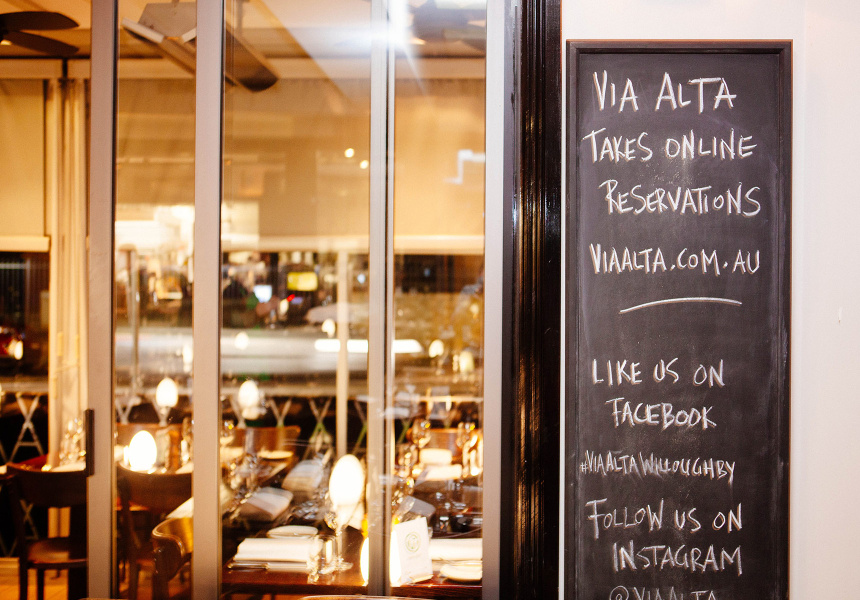 VIA ALTA
TAKES ONLINE
RESERVATIONS
VIAALTA.COM.AU
LIKE US ON
FACEBOOK
#VIAALTAWILLOUGHBY
FOLLOW US ON
INSTAGRAM
@VIAALTA